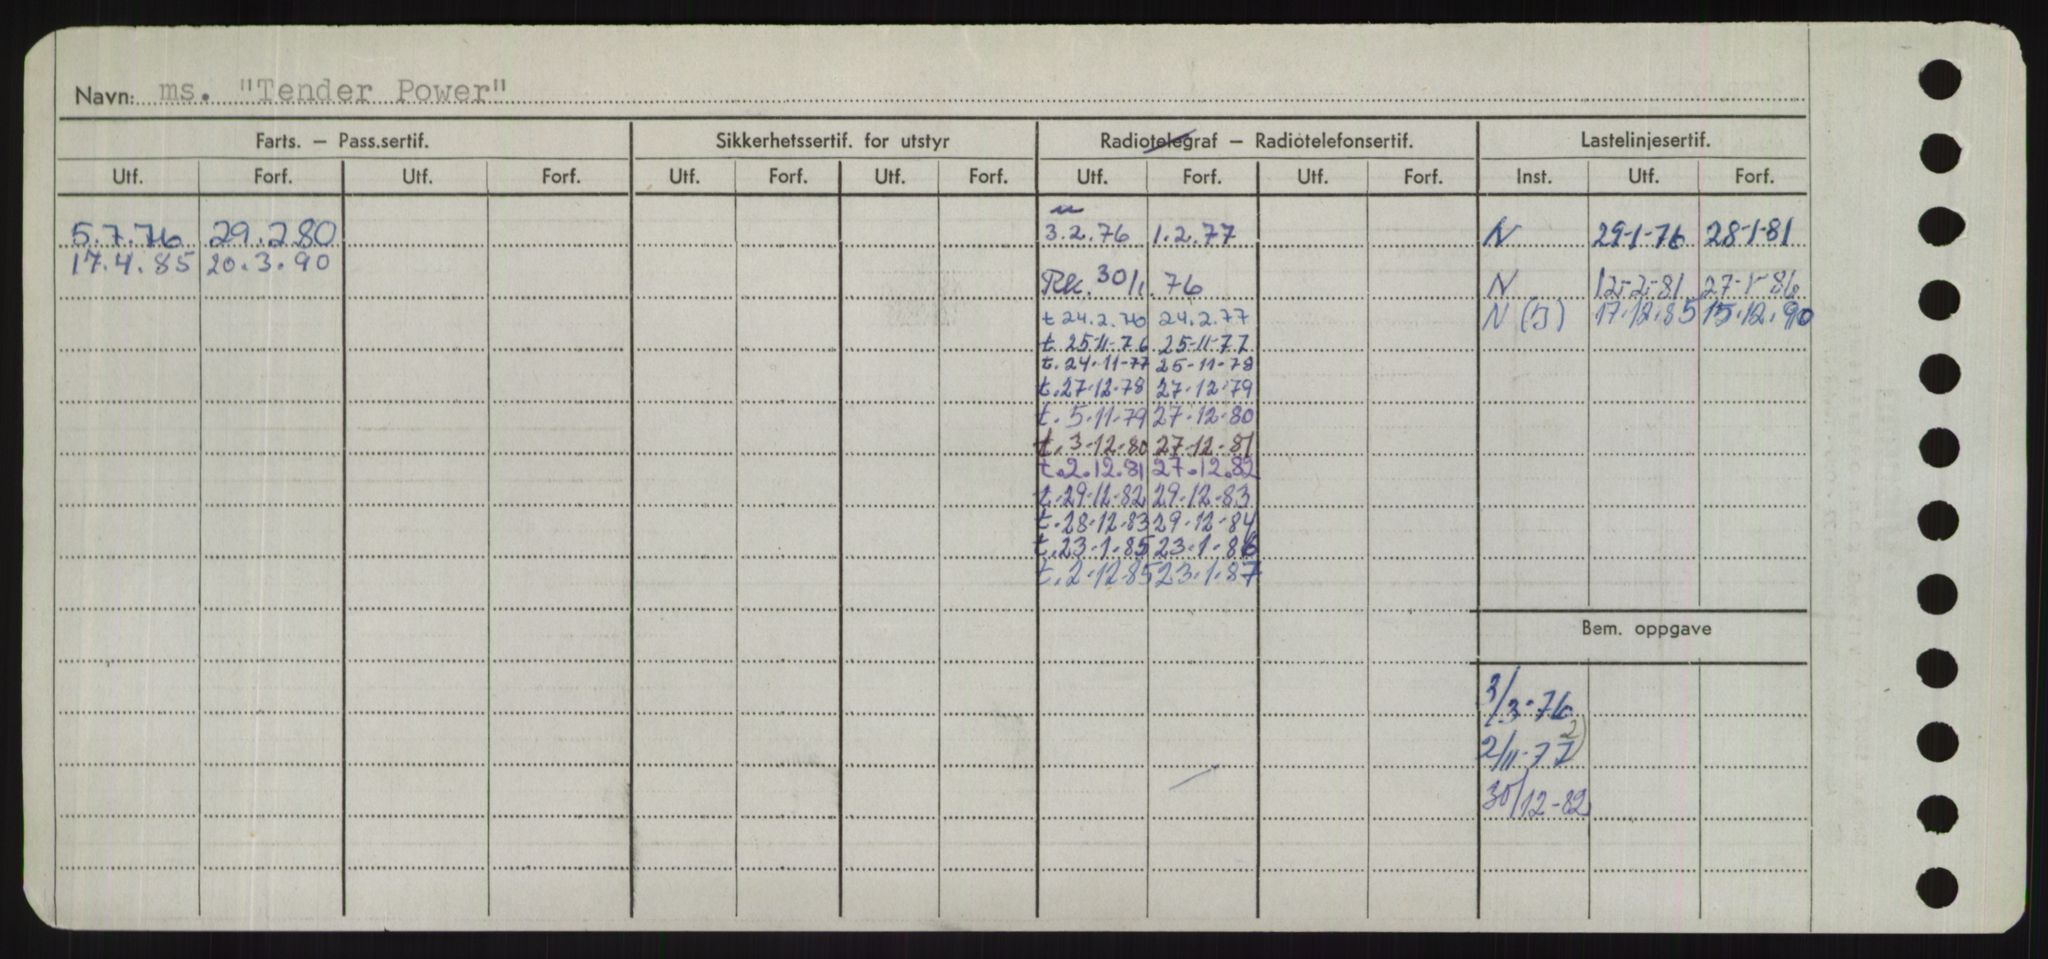 Navn: ms. "Tender Power"
Farts. – Pass.sertif. Sikkerhetssertif. for utstyr Radiotelegraf – Radiotelefonsertif. Lastelinjesertif.
Utf. Forf. Utf. Forf. Utf. Forf. Utf. Forf. Utf. Forf. Utf. Forf. Inst. Utf. Forf.
5.7.76 29.2.80 3.2.76 1.2.77 N 29-1-76 28-1-81
17.4.85 20.3.90
Rk. 30/1.76 N 12-2-81 27-1-86
t 24.2.76 24.2.77 N (J) 17.12.85 15.12.90
t. 25-11-76 25-11-77
t. 24-11-77 25-11-78
t. 27-12-78 27-12-79
t. 5-11-79 27-12-80
t. 3-12-80 27-12-81
t. 2.12.81 27.12.82
t. 29-12-82 29-12-83
t. 28-12-83 29-12-84
t. 23-1-85 23-1-86
t. 2-12-85 23-1-87
Bem. oppgave
3/3-76
2/11-77 2)
30/12-82